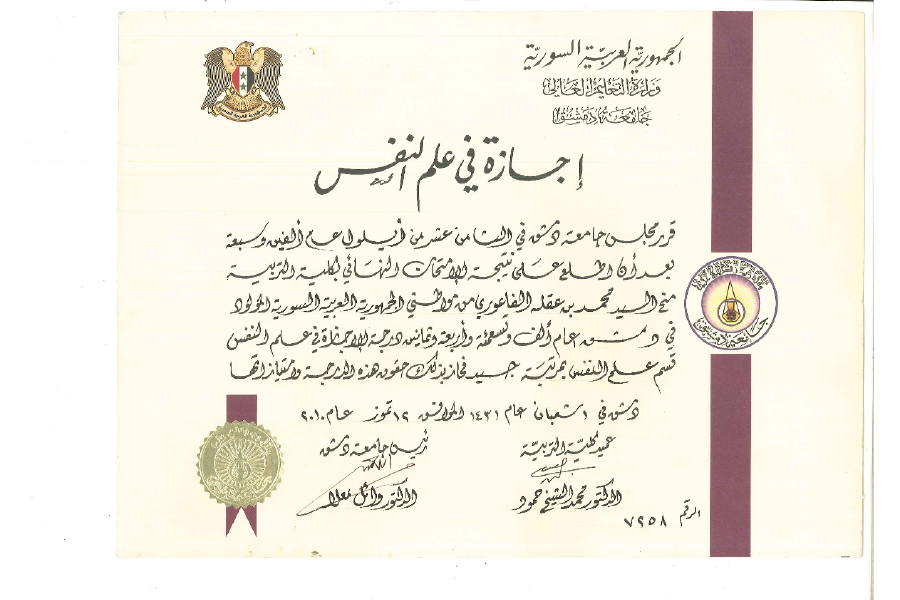 الجمهورية العربية السورية
وزارة التعليم العالي
جامعة دمشق
إجازة في علم النفس
قرر مجلس جامعة دمشق في الثامن عشر من أيلول عام ألفين وسبعة
بعد أن اطلع على نتيجة الامتحان النهائي لكلية التربية
منح السيد محمد بن عقله الفاعوري من مواطني الجمهورية العربية السورية المولود
في دمشق عام ألف وتسعمئة وأربعة وثمانين درجة الإجازة في علم النفس
قسم علم النفس بمرتبة جيد فحاز بذلك حقوق هذه الدرجة وامتيازاتها
دمشق في ١ شعبان عام ١٤٣١ الموافق ١٢ تموز عام ٢٠١٠
عميد كلية التربية
رئيس جامعة دمشق
الدكتور محمد الشيخ حمود
الدكتور وائل معلا
الرقم ٧٢٥٨
جامعة دمشق